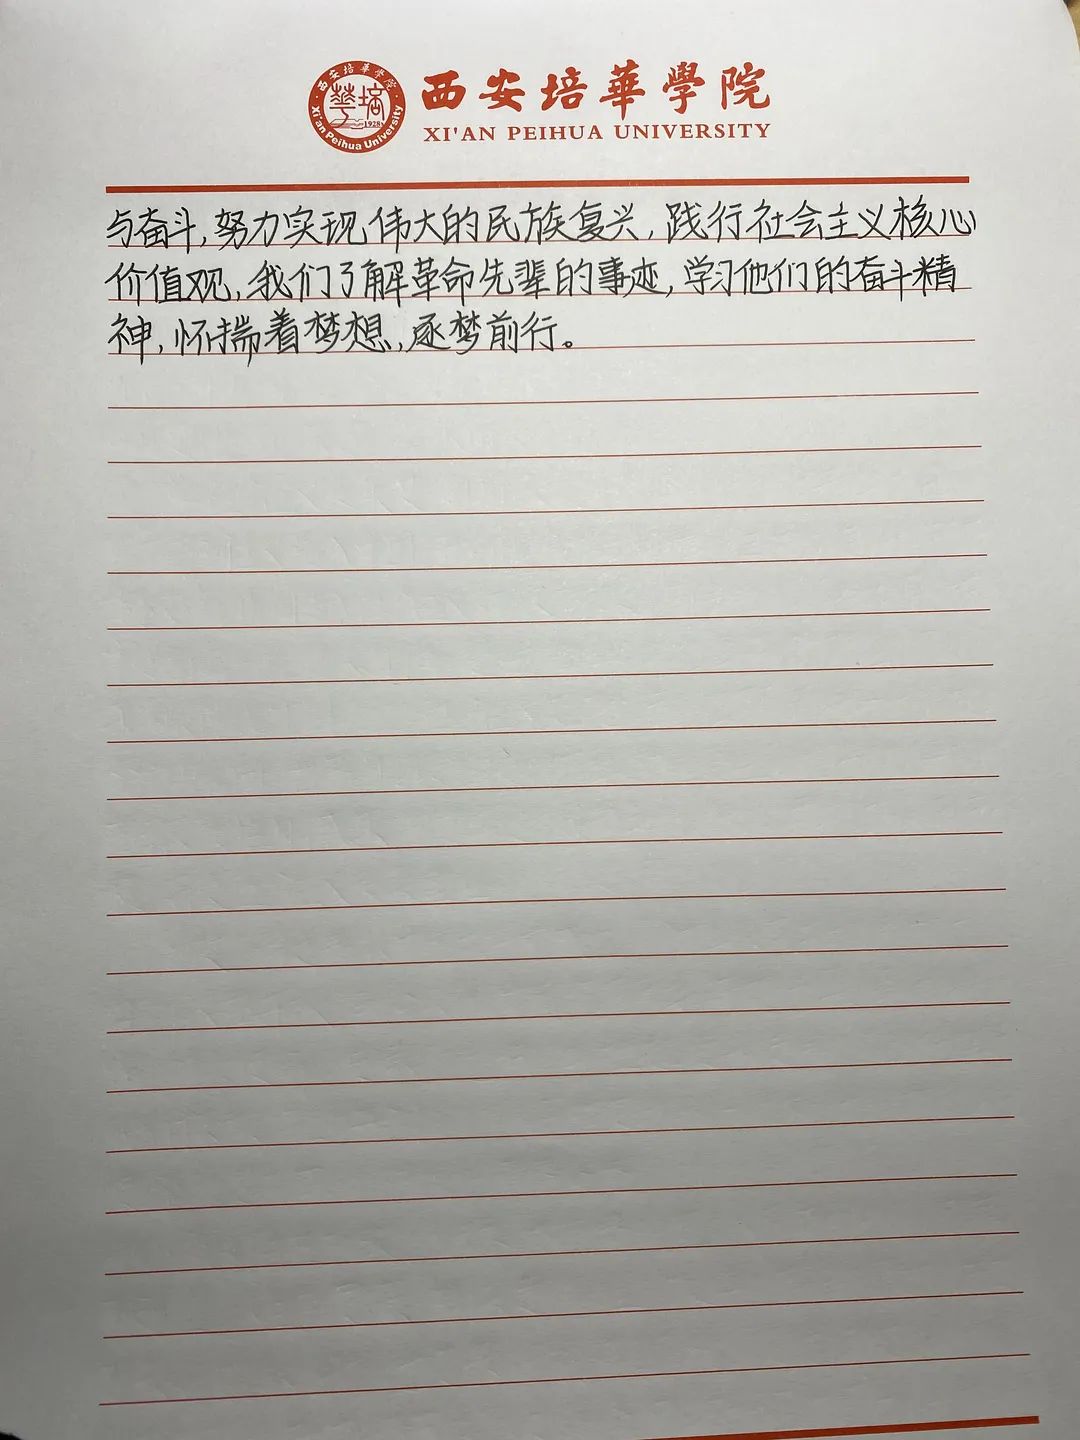 西安培華學院
華培
1928
Xi'an Peihua University
西安培華學院
XI'AN PEIHUA UNIVERSITY
与奋斗,努力实现伟大的民族复兴,践行社会主义核心
价值观,我们了解革命先辈的事迹,学习他们的奋斗精
神,怀揣着梦想,逐梦前行。